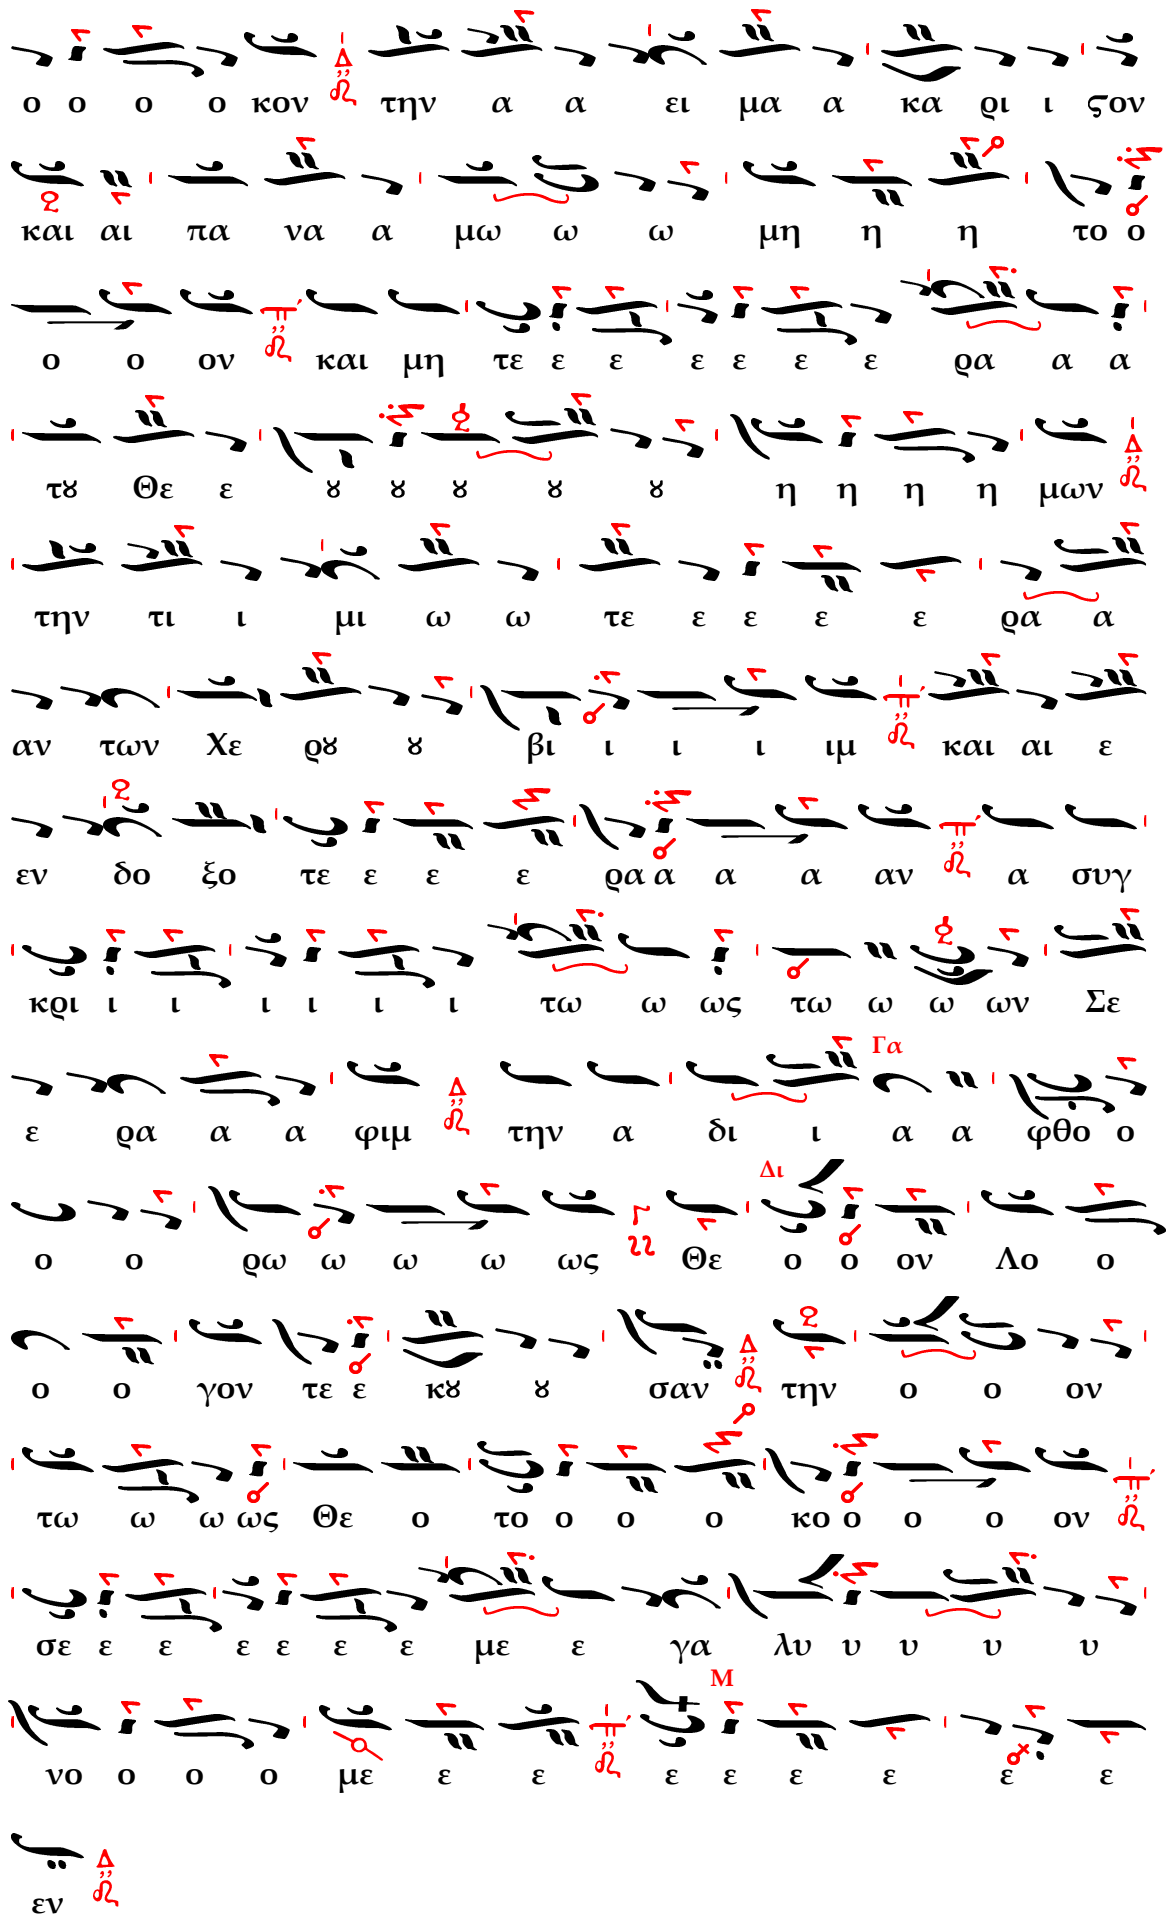 ο ο ο ο κον την α α ει μα α κα ρι ι ϛον
και αι πα να α μω ω ω μη η η το ο
ο ο ον και μη τε ε ε ε ε ε ε ρα α α
τȣ Θε ε ȣ ȣ ȣ ȣ ȣ η η η η μων
την τι ι μι ω ω τε ε ε ε ε ρα α
αν των Χε ρȣ ȣ βι ι ι ι ιμ και αι ε
εν δο ξο τε ε ε ε ρα α α α αν α συγ
κρι ι ι ι ι ι ι τω ω ως τω ω ω ων Σε
Γα
ε ρα α α φιμ την α δι ι α α φθο ο
Δι
ο ο ρω ω ω ω ως Θε ο ο ον Λο ο
ο ο γον τε ε κȣ ȣ σαν την ο ο ον
τω ω ω ως Θε ο το ο ο ο κο ο ο ο ον
σε ε ε ε ε ε ε με ε γα λυ υ υ υ υ
Μ
νο ο ο ο με ε ε ε ε ε ε ε ε
εν